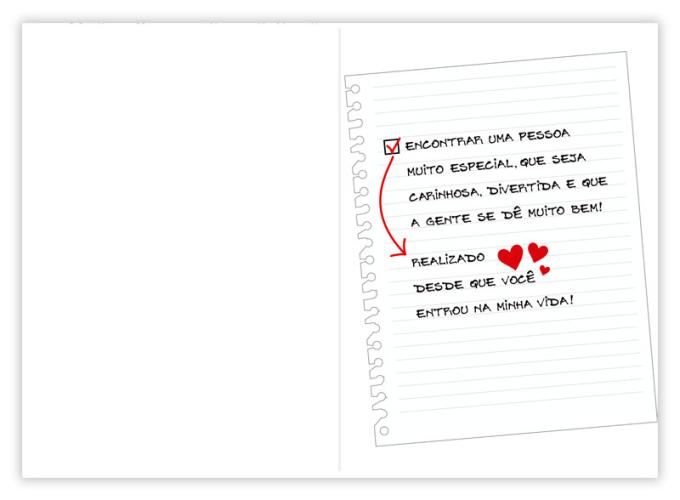 ENCONTRAR UMA PESSOA
MUITO ESPECIAL, QUE SEJA
CARINHOSA, DIVERTIDA E QUE
A GENTE SE DÊ MUITO BEM!
REALIZADO
DESDE QUE VOCÊ
ENTROU NA MINHA VIDA!